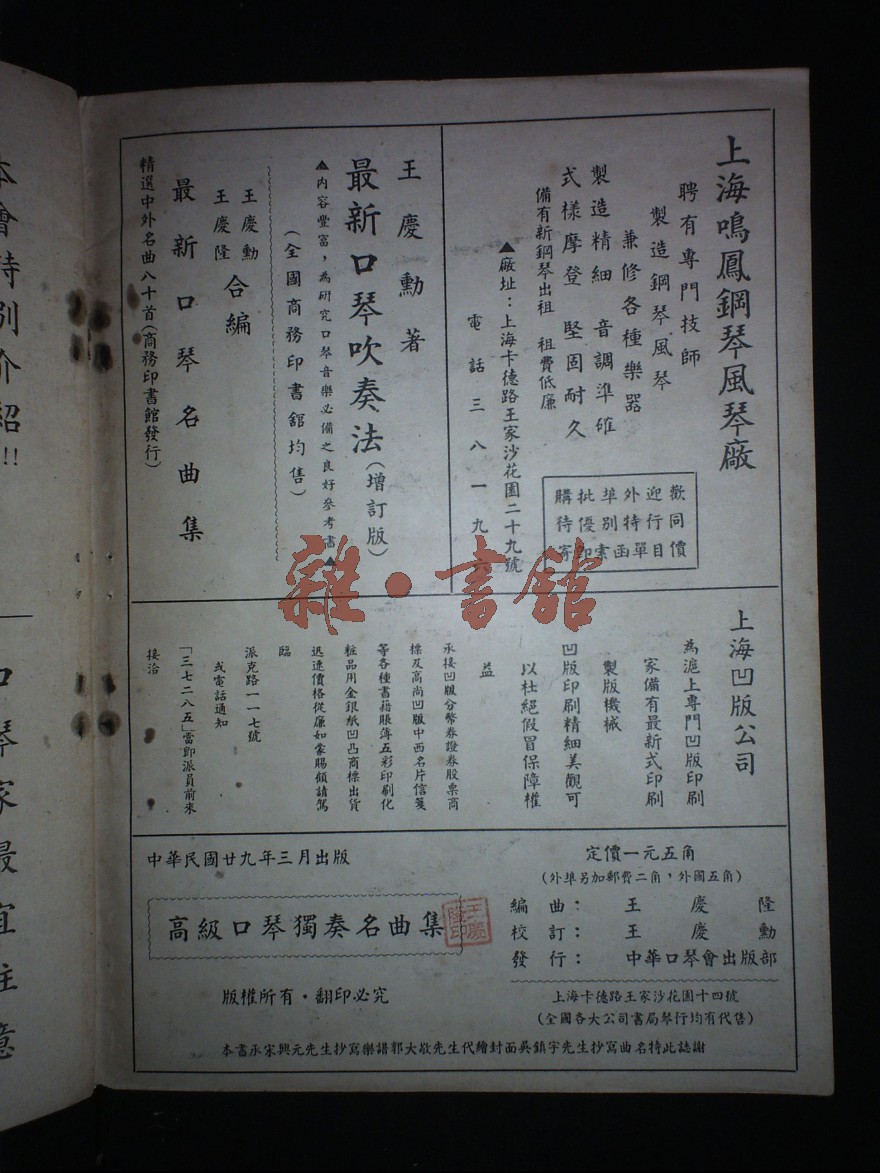 上海鳴鳳鋼琴風琴廠
聘有專門技師
製造鋼琴風琴
兼修各種樂器
製造精細 音調準確
式樣摩登 堅固耐久
備有新鋼琴出租 租費低廉
▲廠址：上海卡德路王家沙花園二十九號
電話三八一九六
歡迎外埠批購
同行特別優待
價目單函索即寄
王慶勳著
最新口琴吹奏法(增訂版)
▲內容豐富，為研究口琴音樂必備之良好參考書▲
(全國商務印書舘均售)
王慶勳
王慶隆
合編
最新口琴名曲集
精選中外名曲八十首(商務印書館發行)
上海凹版公司
為滬上專門凹版印刷
家備有最新式印刷
製版機械
凹版印刷精細美觀可
以杜絕假冒保障權
益
承接凹版分幣券證券股票商
標及高尚凹版中西名片信箋
等各種書籍賬簿五彩印刷化
粧品用金銀紙凹凸商標出貨
迅速價格從廉如蒙賜顧請駕
臨
派克路一一七號
或電話通知
「三七二八五」當即派員前來
接洽
中華民國廿九年三月出版
高級口琴獨奏名曲集
王慶隆印
版權所有・翻印必究
定價一元五角
(外埠另加郵費二角，外國五角)
編曲：王慶隆
校訂：王慶勳
發行：中華口琴會出版部
上海卡德路王家沙花園十四號
(全國各大公司書局琴行均有代售)
本書承宋興元先生抄寫樂譜郭大敬先生代繪封面吳鎮宇先生抄寫曲名特此誌謝
本會特別介紹!!
口琴家最宜注意
雜・書舘